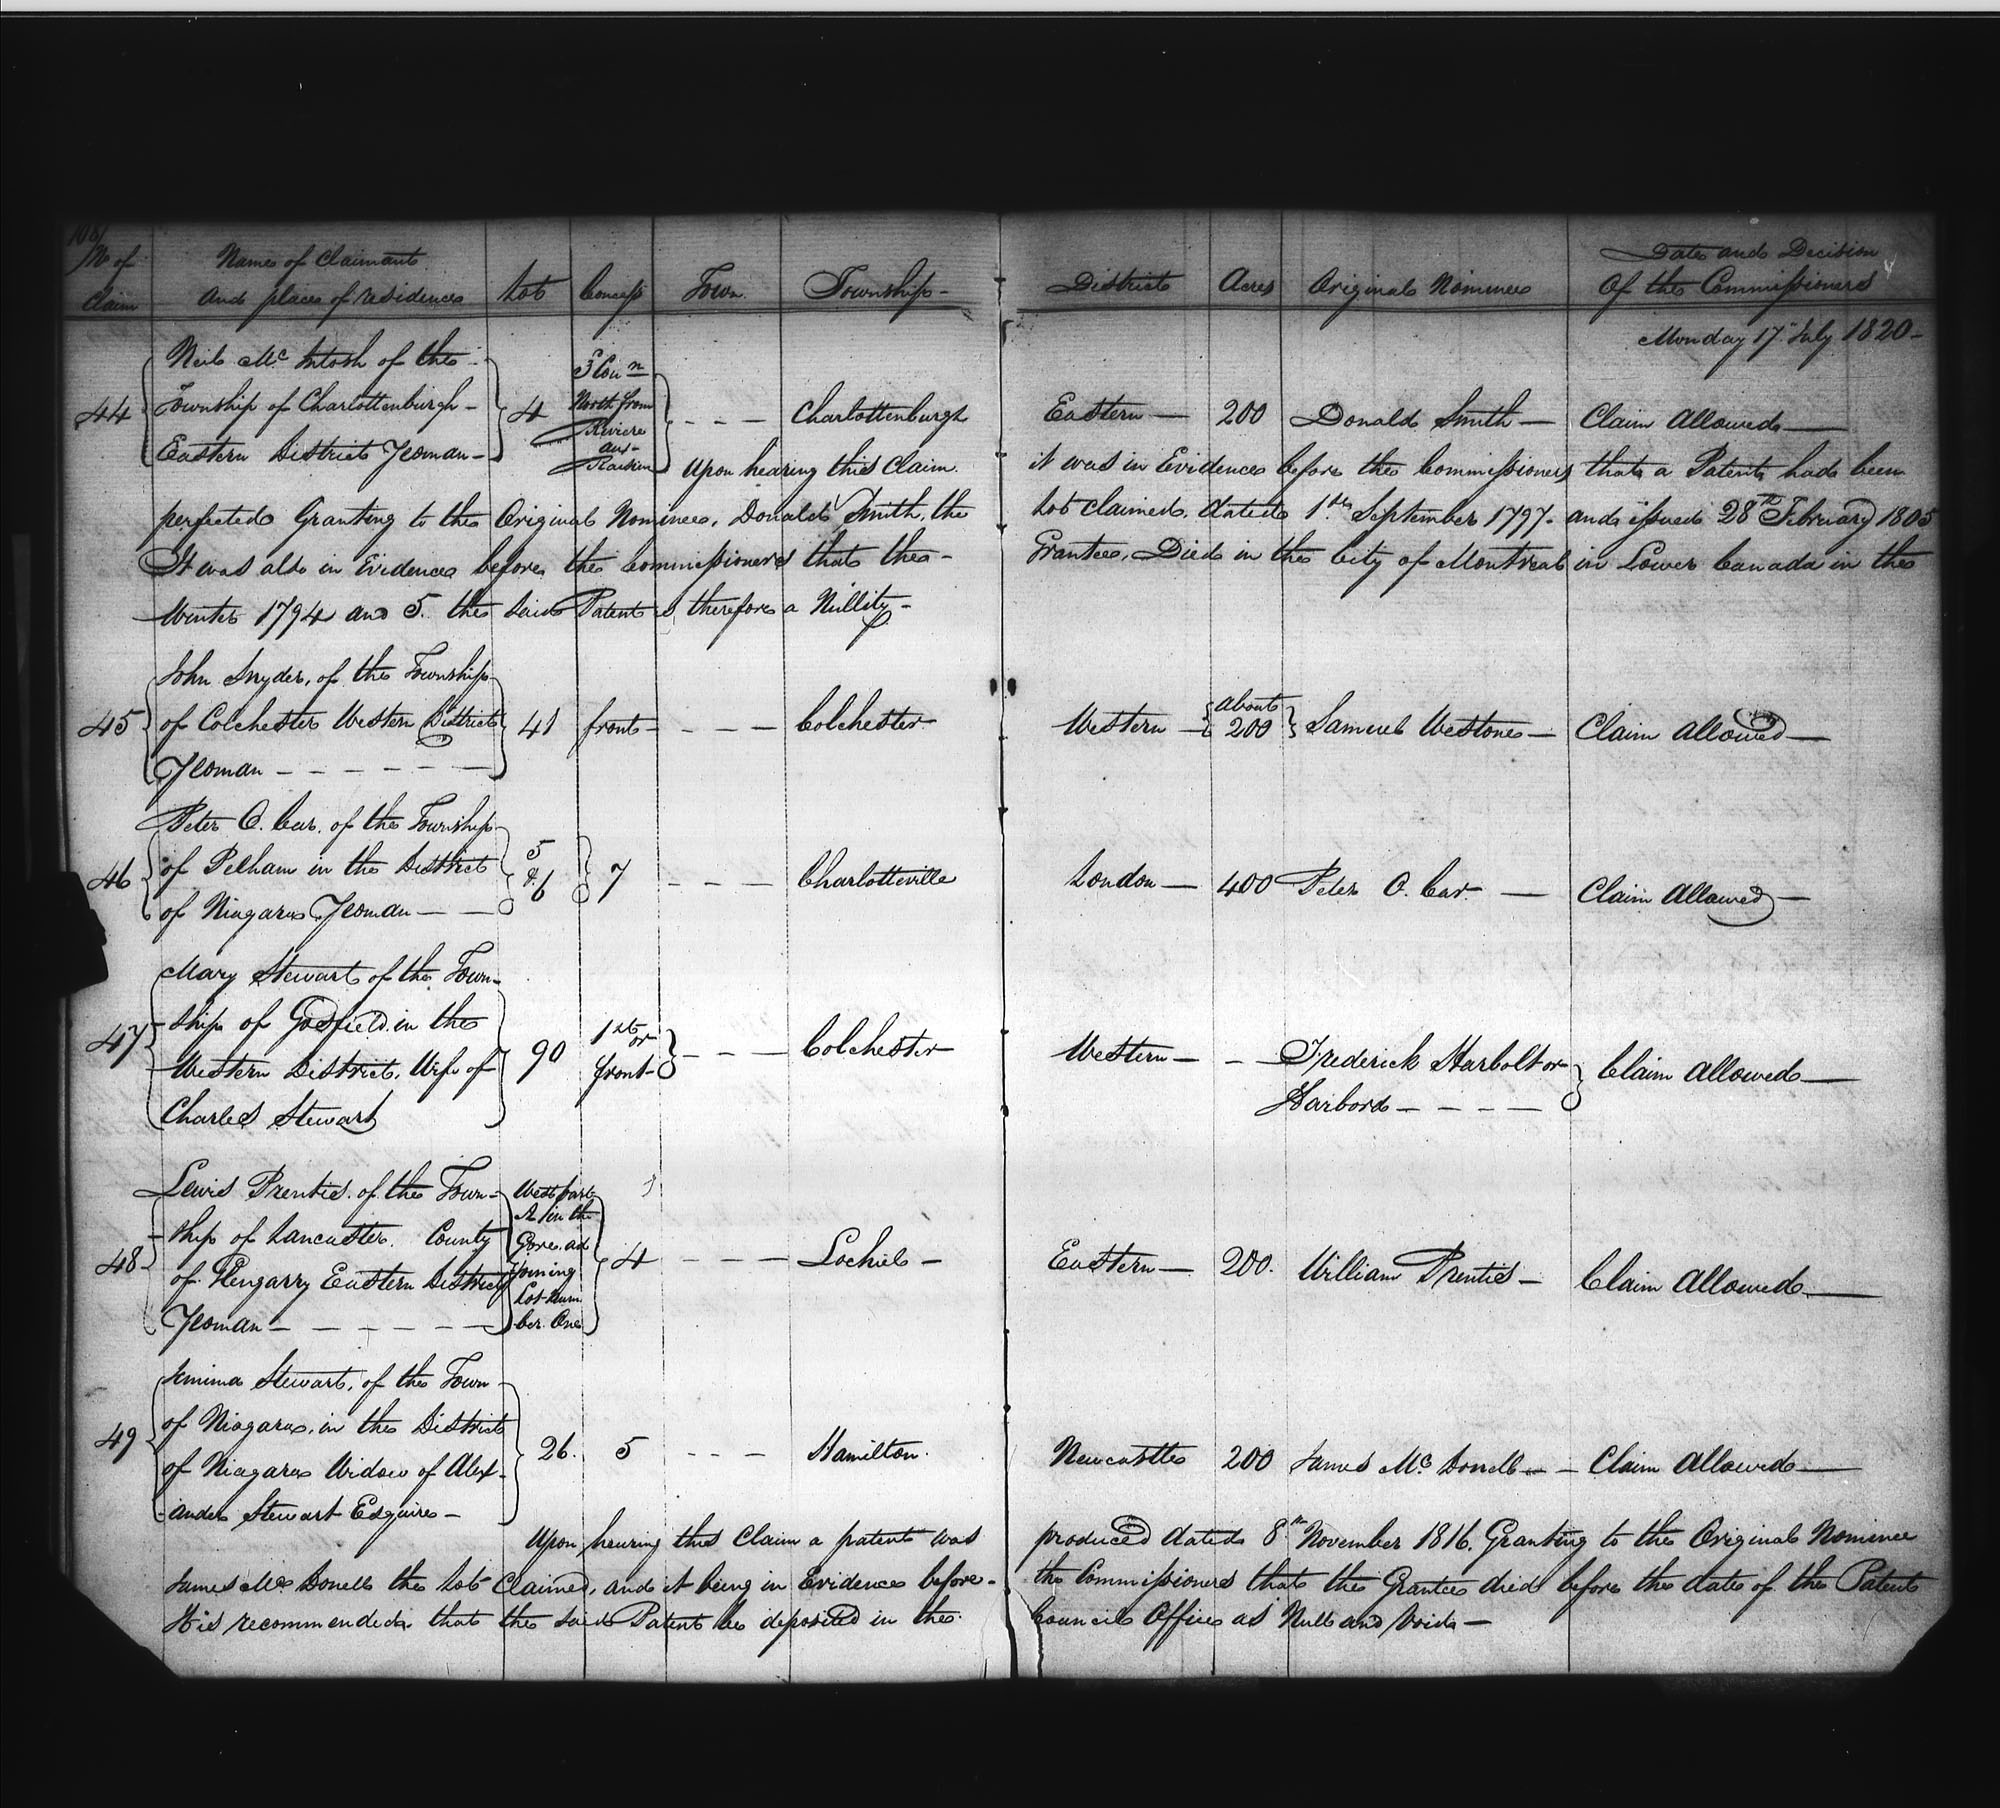 108/
No of Claim
Names of Claimants and places of residence
Lot
Concess
Town
Township
District
Acres
Original Nominee
Date and Decision Of the Commissioners
Monday 17th July 1820
44
Neil Mc Intosh of the
Township of Charlottenburgh
Eastern District Yeoman
4
Con n
North from
Riviere
aux
Raisin
Charlottenburgh
Eastern
200
Donald Smith
Claim Allowed
Upon hearing this Claim it was in Evidence before the Commissioners that a Patent had been
perfected Granting to the Original Nominee, Donald Smith, the Lot claimed, dated 1st September 1797 and issued 28th February 1805
It was also in Evidence before the Commissioners that the Grantee, Died in the City of Montreal in Lower Canada in the
Winter 1794 and 5. the said Patent is therefore a Nullity
45
John Snyder, of the Township
of Colchester Western District
Yeoman
41
front
Colchester
Western
About
200
Samuel Westone
Claim Allowed
46
Peter O. Car. of the Township
of Pelham in the District
of Niagara Yeoman
5
&
6
7
Charlotteville
London
400
Peter O. Car
Claim Allowed
47
Mary Stewart of the Town-
ship of Gosfield in the
Western District, Wife of
Charles Stewart
90
1st or
front
Colchester
Western
Frederick Harbolt or
Harbord
Claim Allowed
48
Lewis Prentis of the Town-
ship of Lancaster County
of Glengarry Eastern District
Yeoman
West part
in the
Gore ad
joining
Lot Num
ber One
4
Lochiel
Eastern
200.
William Prentis
Claim Allowed
49
Jemima Stewart, of the Town
of Niagara, in the District
of Niagara Widow of Alex-
ander Stewart Esquire
26.
5
Hamilton.
Newcastle
200
James Mc Donell
Claim Allowed
Upon hearing this Claim a patent was produced dated 8th November 1816. Granting to the Original Nominee
James Mc Donell the Lot Claimed, and it being in Evidence before the Commissioners that the Grantee died before the date of the Patent
It is recommended that the said Patent be deposited in the Council Office as Null and Void